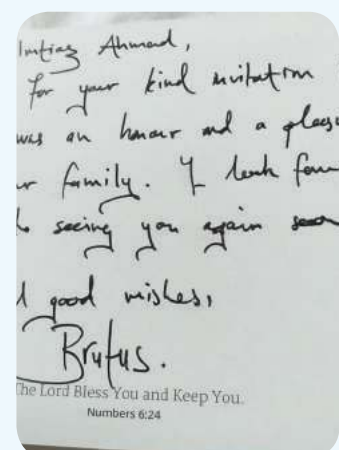 Imtiaz Ahmad,
for your kind invitation
was an honour and a pleas
ur family. I look for
to seeing you again soon
d good wishes,
Brutus.
The Lord Bless You and Keep You.
Numbers 6:24